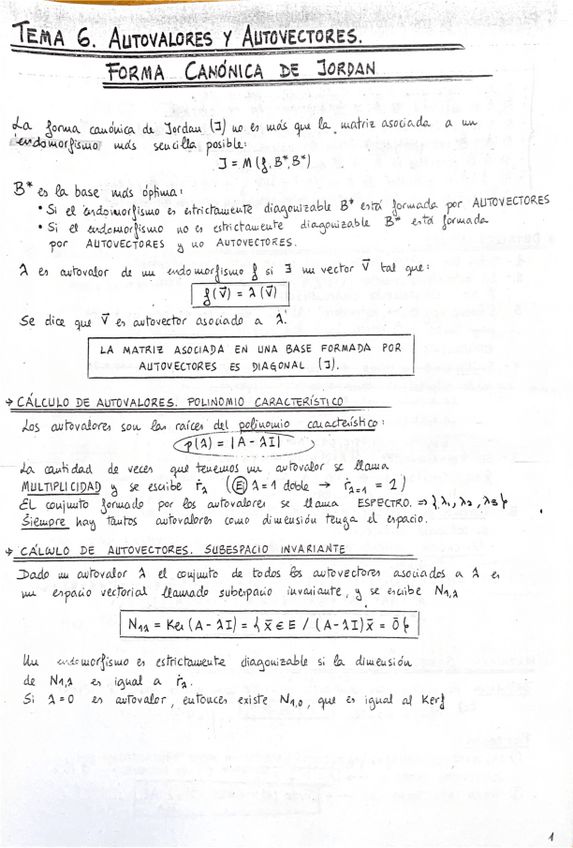 TEMA 6. AUTOVALORES Y AUTOVECTORES.
FORMA CANÓNICA DE JORDAN
La forma canónica de Jordan (J) no es más que la matriz asociada a un
endomorfismo más sencilla posible:
J = M (f, B*, B*)
B* es la base más óptima:
• Si el endomorfismo es estrictamente diagonizable B* está formada por AUTOVECTORES
• Si el endomorfismo no es estrictamente diagonizable B* está formada
por AUTOVECTORES y no AUTOVECTORES.
λ es autovalor de un endomorfismo f si ∃ un vector V̄ tal que:
f(V̄) = λ(V̄)
Se dice que V̄ es autovector asociado a λ.
LA MATRIZ ASOCIADA EN UNA BASE FORMADA POR
AUTOVECTORES ES DIAGONAL (J).
→ CÁLCULO DE AUTOVALORES. POLINOMIO CARACTERÍSTICO
Los autovalores son las raíces del polinomio característico:
p(λ) = |A - λI|
La cantidad de veces que tenemos un autovalor se llama
MULTIPLICIDAD y se escribe r_λ (E λ=1 doble → r_λ=1 = 2)
El conjunto formado por los autovalores se llama ESPECTRO. ⇒ {λ₁, λ₂, λ₃}
Siempre hay tantos autovalores como dimensión tenga el espacio.
→ CÁLCULO DE AUTOVECTORES. SUBESPACIO INVARIANTE
Dado un autovalor λ el conjunto de todos los autovectores asociados a λ es
un espacio vectorial llamado subespacio invariante, y se escribe N₁,λ
N₁λ = Ker (A - λI) = { x̄ ∈ E / (A - λI) x̄ = ō }
Un endomorfismo es estrictamente diagonizable si la dimensión
de N₁,λ es igual a r_λ.
Si λ=0 es autovalor, entonces existe N₁,₀, que es igual al Kerf
1